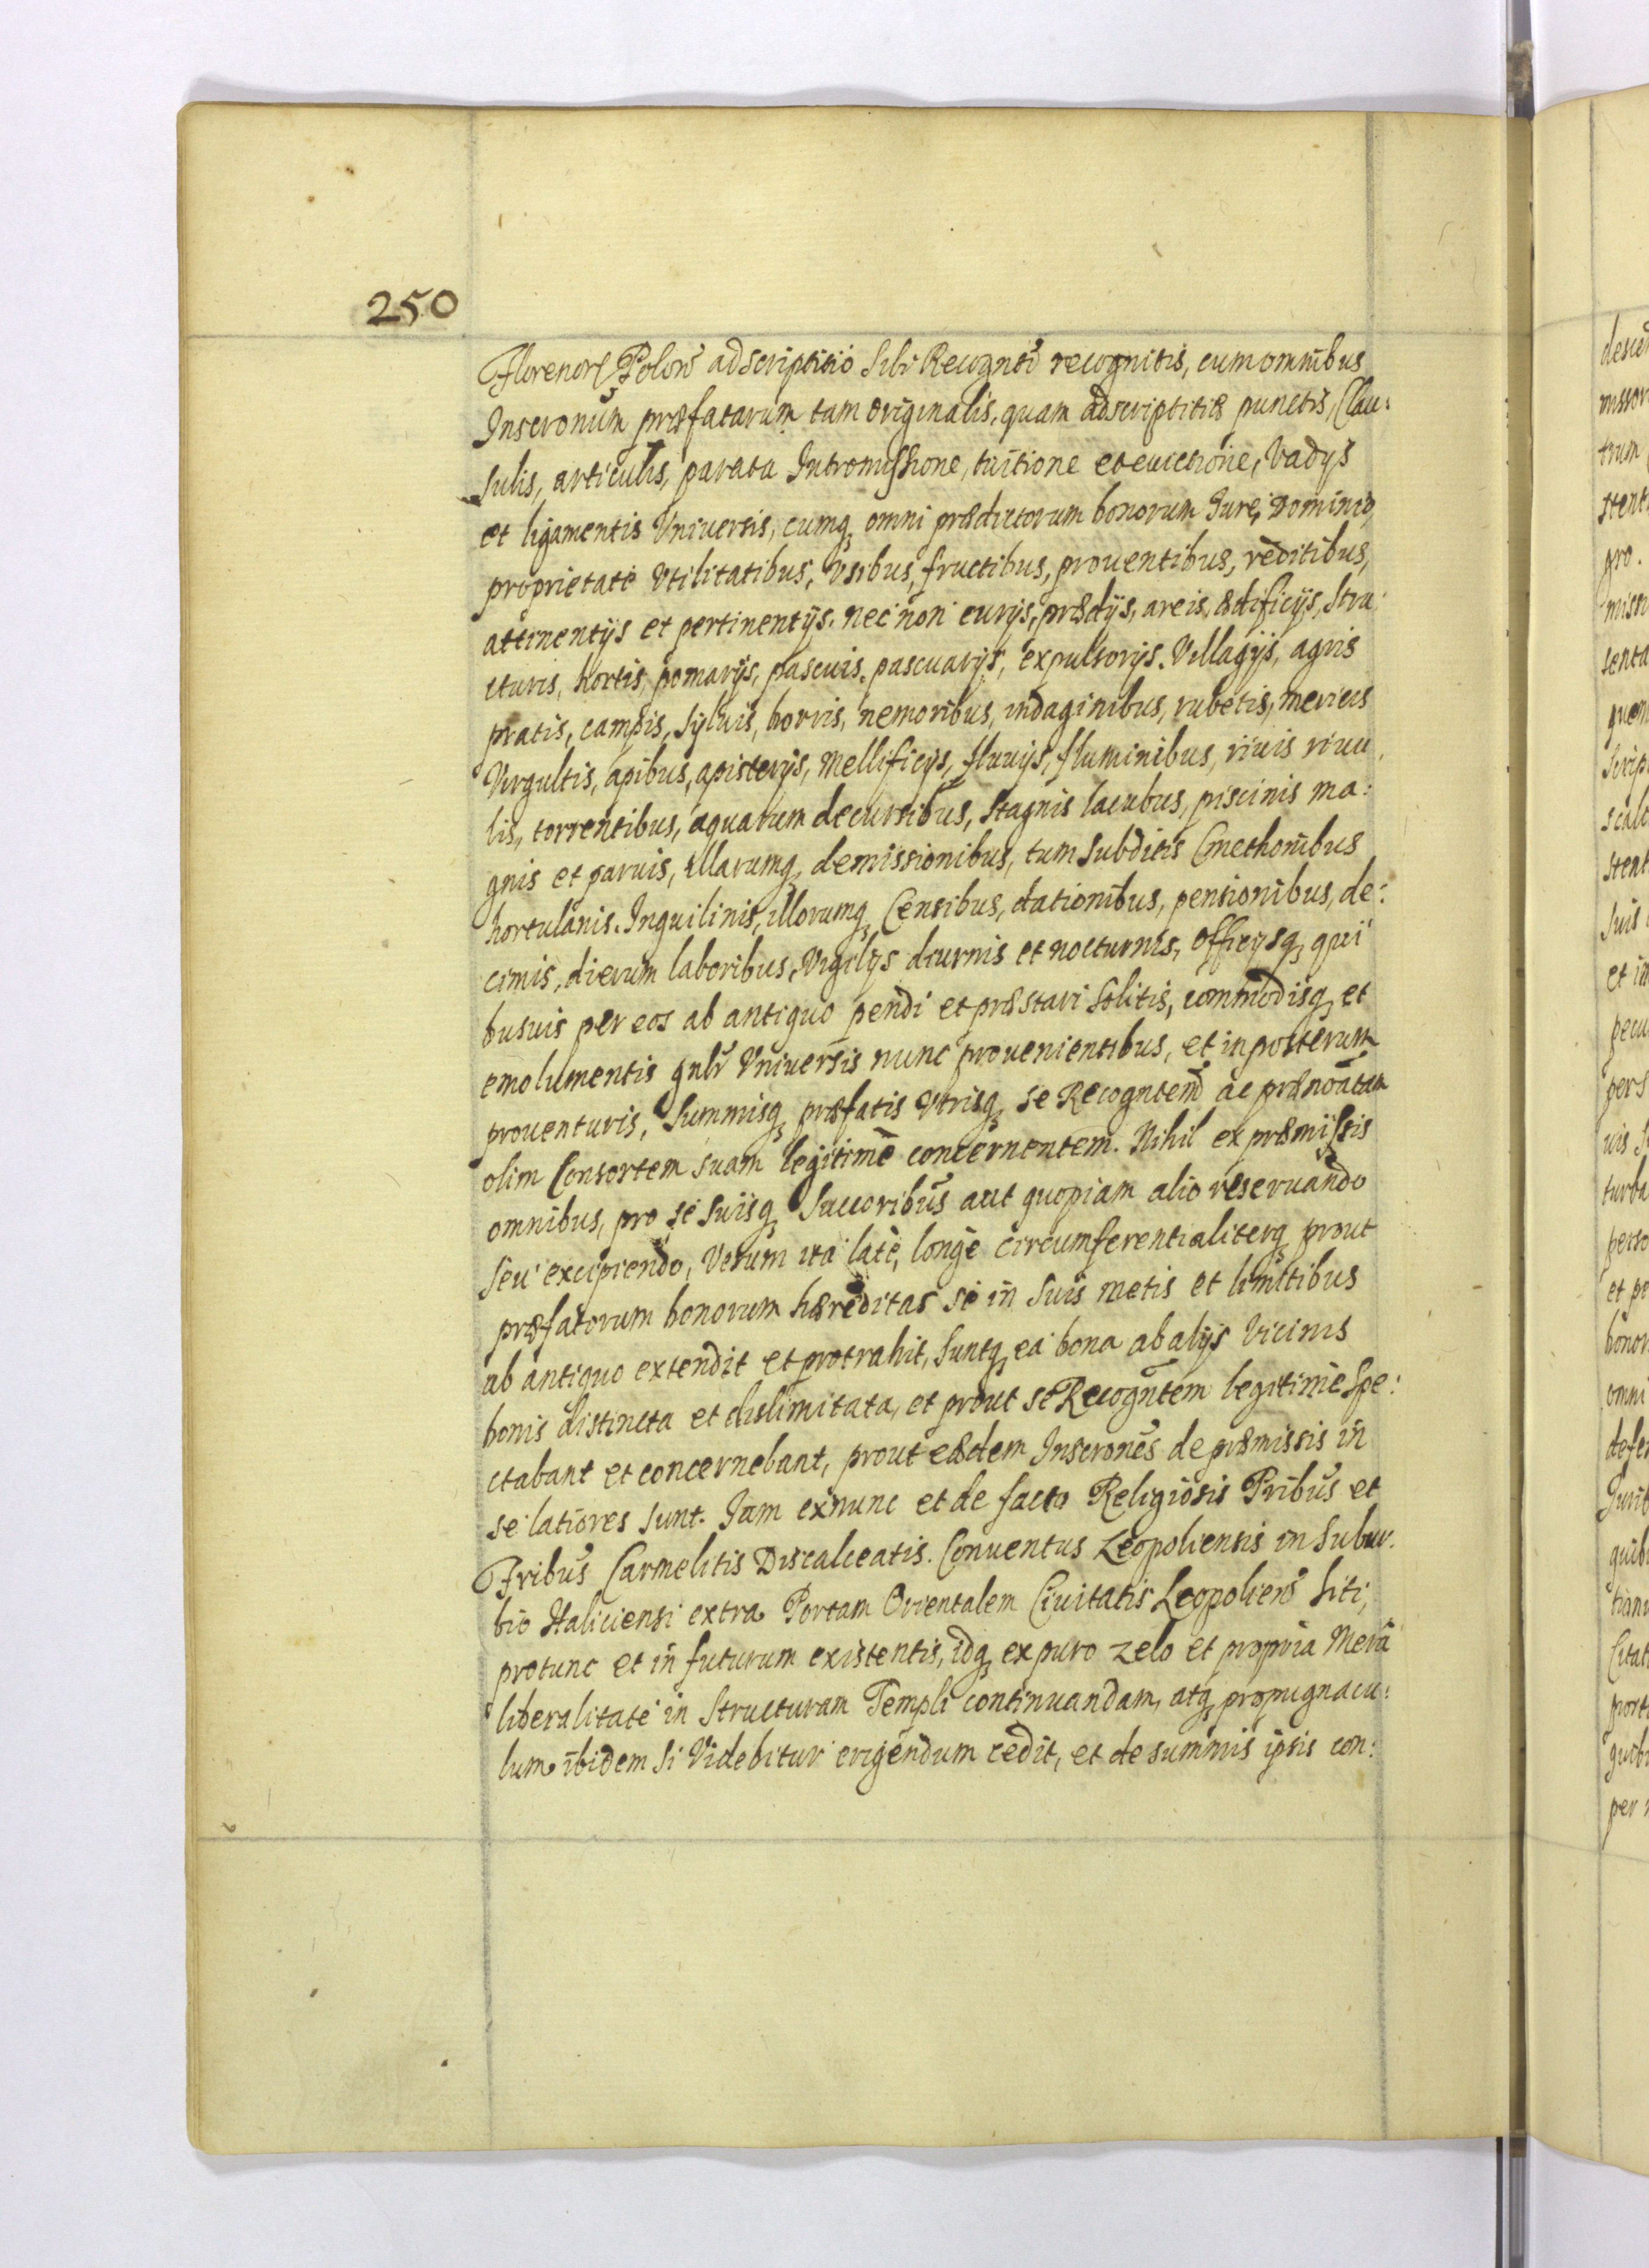 250
Florenor Polon̄ adscriptitio sibi Recognti recognitis, cum omnibus
Inscronum præfatarum tam originalis, quam adscriptitiæ punctis, Clau:
sulis, articulis, parata Intromissione, tuitione et euictione, Vadys
et ligamentis Vniuersis, cumq, omni prædictorum bonorum Iure, dominio,
proprietate Vtilitatibus, Vsibus, fructibus, prouentibus, reditibus,
attinentijs et pertinentijs. nec non curijs, prædijs, areis, ædificijs, Stru:
cturis, hortis, pomarijs, pascuis, pascuarijs, expulsorijs. Villagijs, agris
pratis, campis, syluis, borris, nemoribus, indaginibus, rubetis, mericis
Virgultis, apibus, apisterijs, Mellificijs, fluuijs, fluminibus, riuis riuu
lis, torrentibus, aquarum decursibus, Stagnis lacubus, piscinis ma:
gnis et paruis, illarumq, demissionibus, tum Subditis Cmethonibus
hortulanis. Inquilinis, illorumq, Censibus, dationibus, pensionibus, de:
cimis, dierum laboribus, Vigilijs diurnis et nocturnis, officijsq, qui
busuis per eos ab antiquo pendi et præstari solitis, commodisq, et
emolumentis gnlr Vniuersis nunc prouenientibus, et in posterum
prouenturis, Summisq, præfatis Vtrisq, se Recogntem ac prænōatam
olim Consortem suam legitimè concernentem. Nihil ex præmissis
omnibus, pro se suisq, Succoribus aut quopiam alio reseruando
seu excipiendo, Verum ita latè, longè circumferentialiterq, prout
præfatorum bonorum hæreditas se in suis metis et limitibus
ab antiquo extendit et protrahit, Suntq, ea bona ab alijs Vicinis
bonis distincta et dislimitata, et prout se Recogntem legitimè Spe:
ctabant et concernebant, prout eædem Inscrones de præmissis in
se latiores sunt. Iam exnunc et de facto Religiosis Pribus et
Fribus Carmelitis Discalceatis. Conuentus Leopoliensis in Subur.
bio Haliciensi extra Portam Orientalem Ciuitatis Leopolien̄ siti,
protunc et in futurum existentis, idq, ex puro zelo et propria Mera
liberalitate in Structuram Templi continuandam, atq, propugnacu:
lum ibidem si Videbitur erigendum cedit, et de summis ipsis con: